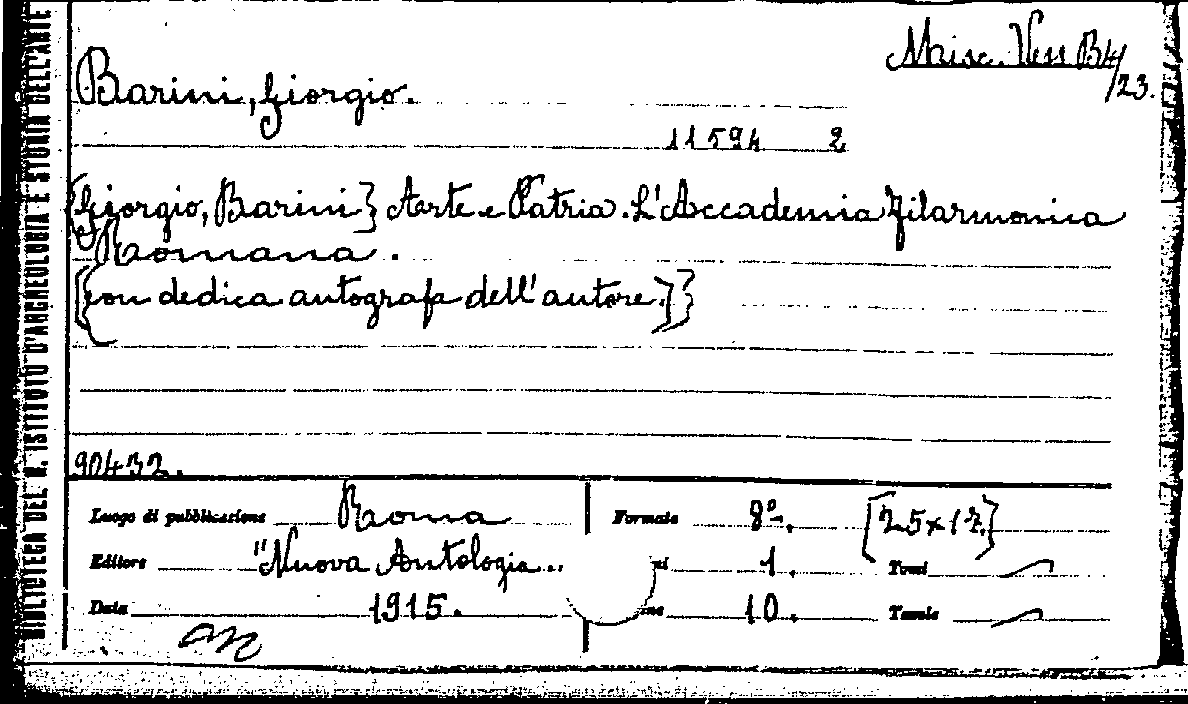 BIBLIOTECA DEL R. ISTITUTO D'ARCHEOLOGIA E STORIA DELL'ARTE
Misc. Ven B4/
/23.
Barini, Giorgio.
11594 2
[Giorgio, Barini] Arte e Patria. L'Accademia Filarmonica
Romana.
[con dedica autografa dell'autore.]
90432.
Luogo di pubblicazione Roma Formato 8º. [25x17]
Editore "Nuova Antologia.. 1. Tomi
Data 1915. 10. Tavole